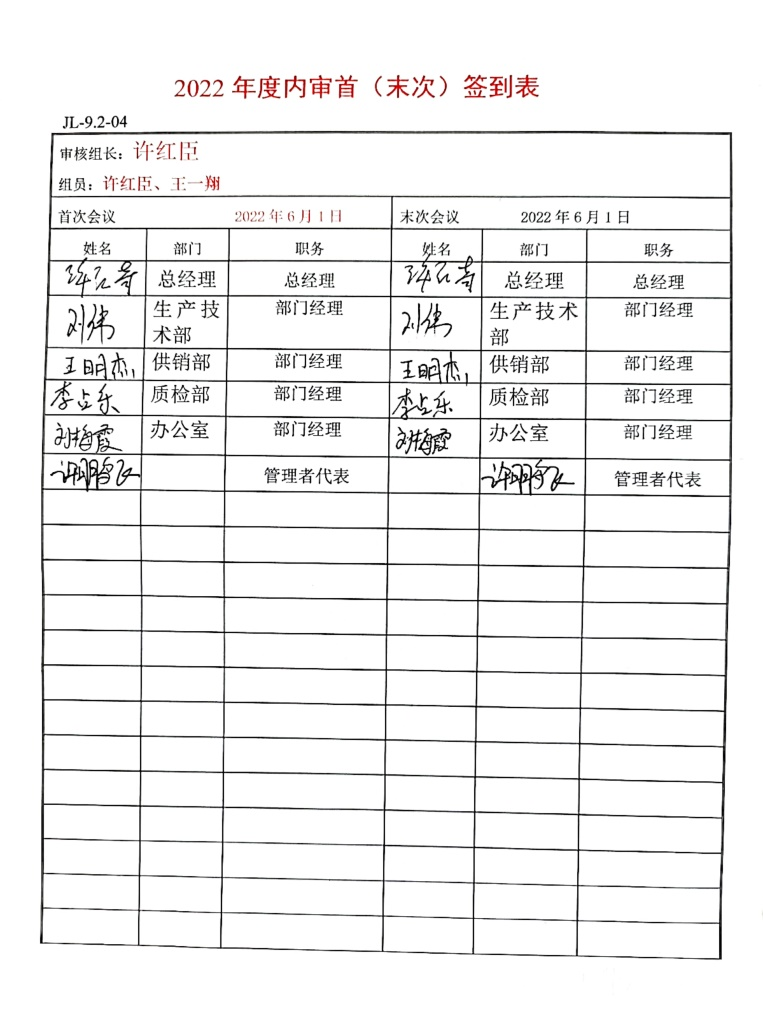 2022 年度内审首（末次）签到表
JL-9.2-04
审核组长：许红臣
组员：许红臣、王一翔
首次会议 2022 年 6 月 1 日 末次会议 2022 年 6 月 1 日
姓名 部门 职务 姓名 部门 职务
总经理 总经理 总经理 总经理
刘伟 生产技 部门经理 刘伟 生产技术 部门经理
术部 部
王明杰 供销部 部门经理 王明杰 供销部 部门经理
李占乐 质检部 部门经理 李占乐 质检部 部门经理
刘梅霞 办公室 部门经理 刘梅霞 办公室 部门经理
管理者代表 管理者代表